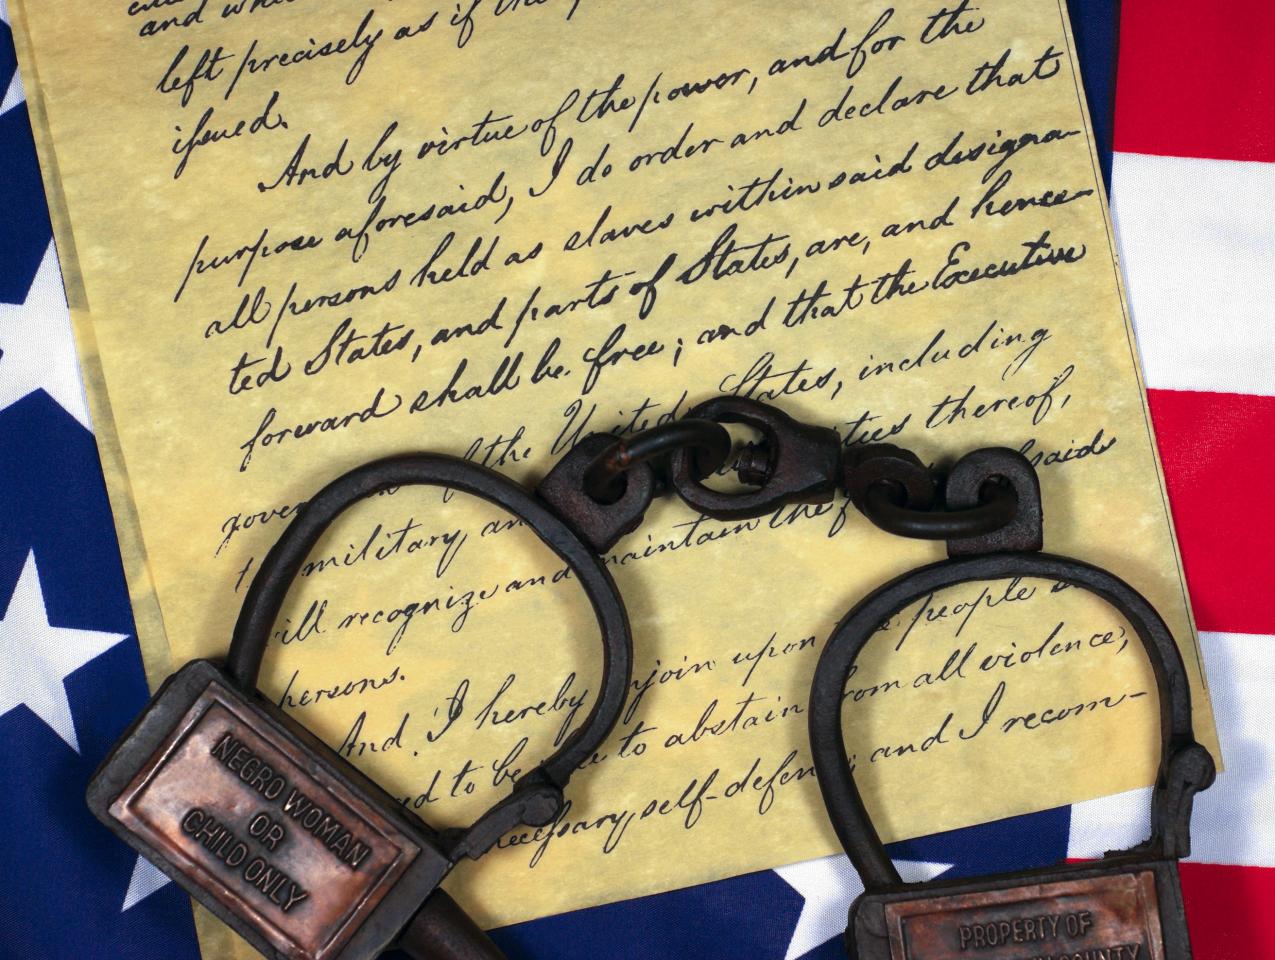 and
left precisely as if the
issued.
And by virtue of the power, and for the
purpose aforesaid, I do order and declare that
all persons held as slaves within said designa-
ted States, and parts of States, are, and hence-
forward shall be free; and that the Executive
of the United States, including
military, and thereof,
will recognize and maintain the said
persons.
And I hereby enjoin upon the people
to be to abstain from all violence,
necessary self-defence; and I recom-
NEGRO WOMAN
OR
CHILD ONLY
PROPERTY OF
COUNTY